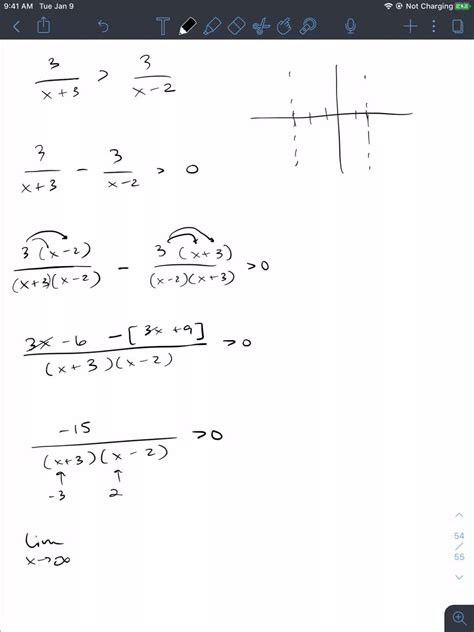 9:41 AM Tue Jan 9
Not Charging
3/(x+3) > 3/(x-2)
3/(x+3) - 3/(x-2) > 0
3(x-2)/((x+3)(x-2)) - 3(x+3)/((x-2)(x+3)) > 0
(3x-6-[3x+9])/((x+3)(x-2)) > 0
-15/((x+3)(x-2)) > 0
↑ ↑
-3 2
lim
x→∞
54
/
55